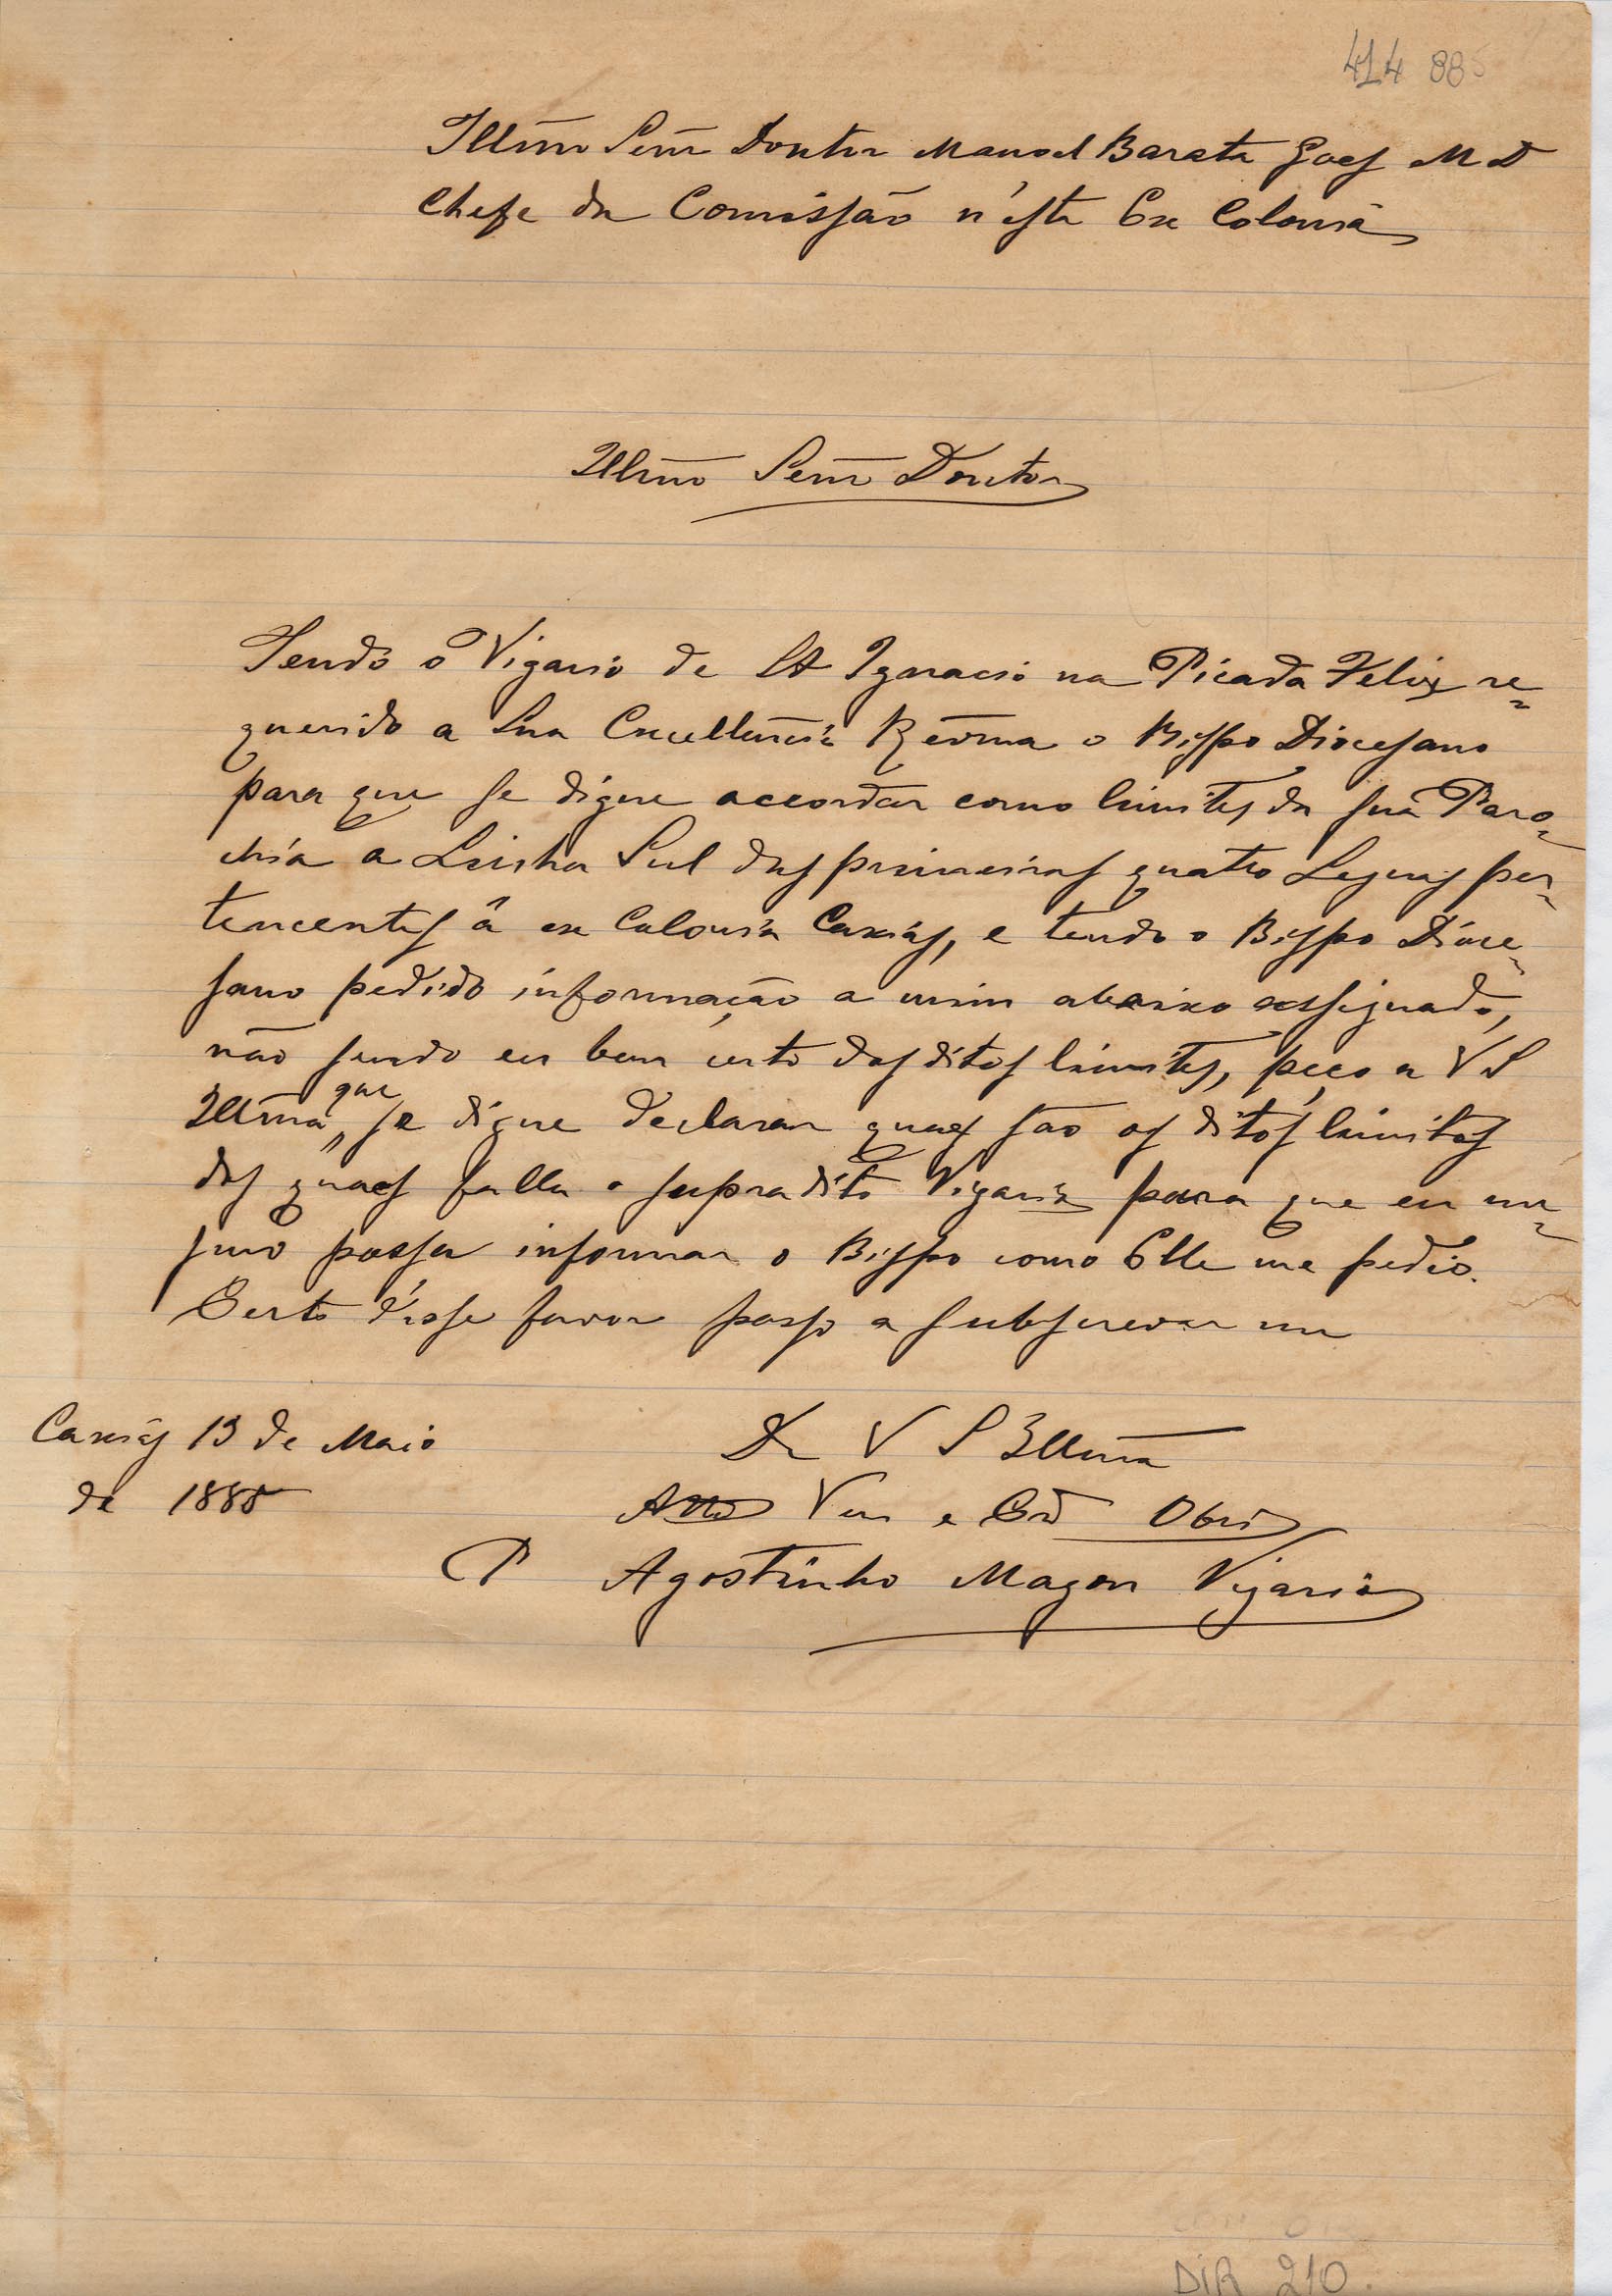 414 885
Illmo Senr Doutor Manoel Barata Goes M D
Chefe da Comissão n'esta Ex Colonia
Illmo Senr Doutor
Tendo o Vigario de St Ignacio na Picada Felix re-
querido a Sua Excellencia Revma o Bispo Diocesano
para que se digne accordar como limites da sua Paro-
chia a Linha Sul das primeiras quatro Legoas per-
tencentes á ex Colonia Caxias, e tendo o Bispo Dioce-
sano pedido informação a mim abaixo assignado,
não sendo eu bem certo dos ditos limites, peço a V S
Illma que se digne declarar quaes são os ditos limites
dos quaes falla o supradito Vigario para que eu me-
smo possa informar o Bispo como Elle me pedio.
Certo d'esse favor passo a subscrever me
Caxias 13 de Maio
de 1885
De V S Illma
Atto Ven e Cro Obrio
P Agostinho Magon Vigario
DIR 210